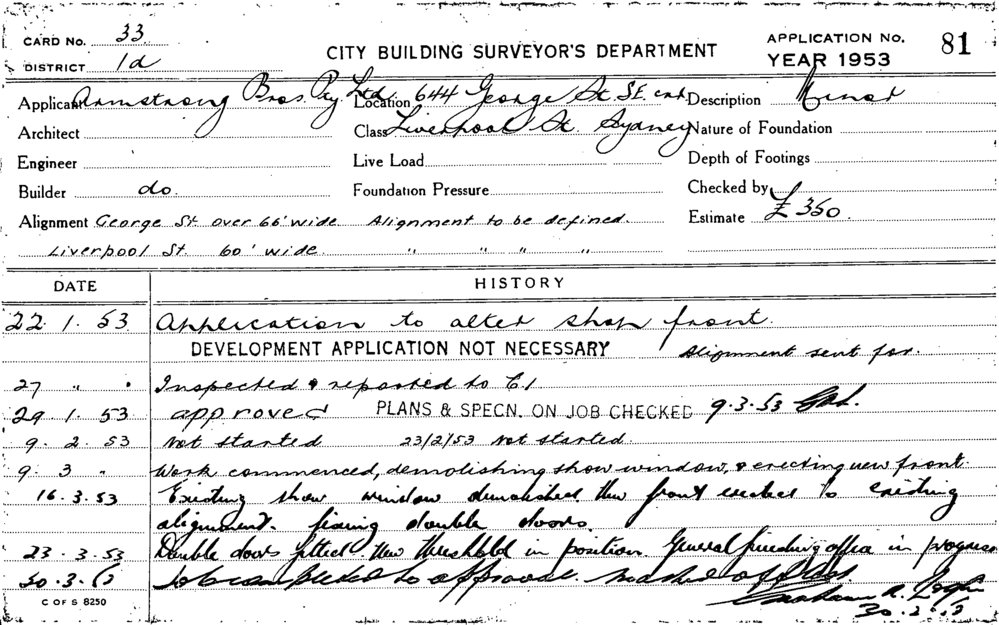 CARD No. 33
DISTRICT 1d
CITY BUILDING SURVEYOR'S DEPARTMENT
APPLICATION No. 81
YEAR 1953
Applicant Armstrong Bros. Pty Ltd. Location 644 George St. SE. cnr. Description Minor
Architect Class Liverpool St. Sydney Nature of Foundation
Engineer Live Load Depth of Footings
Builder do. Foundation Pressure Checked by
Alignment George St over 66' wide Alignment to be defined. Estimate £350
Liverpool St. 60' wide. " " " "
DATE HISTORY
22. 1. 53 Application to alter shop front.
DEVELOPMENT APPLICATION NOT NECESSARY Alignment sent for.
27 " " Inspected & reported to C1
29. 1. 53 approved PLANS & SPECN. ON JOB CHECKED 9.3.53
9. 2. 53 Not started 23/2/53 Not started.
9. 3 " Work commenced, demolishing show window, & erecting new front.
16.3.53 Existing show window demolished, New front erected to existing
alignment. fixing double doors.
23. 3. 53 Double doors fitted. New threshold in position. General finishing in progress
30. 3. Job completed to approval.
C OF S 8250